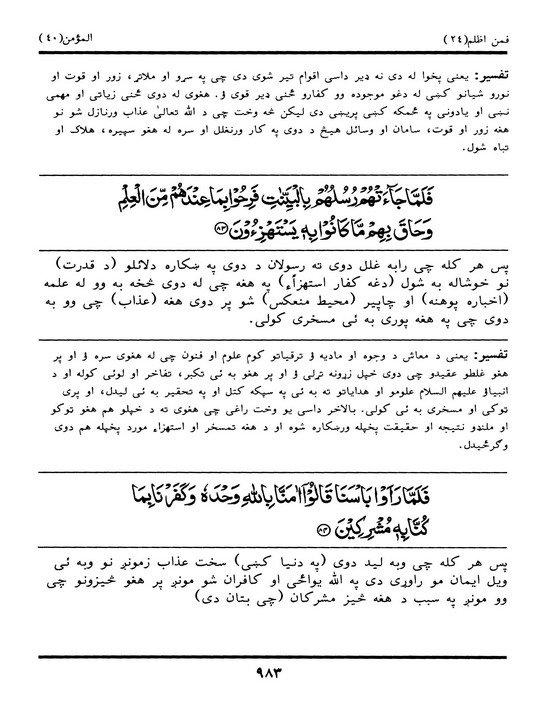 فمن اظلم(٢٤) المؤمن(٤٠)
تفسير: يعنې پخوا له دی نه ډير داسې اقوام تير شوی دی چې په سرو او ملاتړ، زور او قوت او
نورو شيانو کښې له دغو موجوده وو کفارو ځنې ډير قوی ؤ. هغوی له دوی ځنې زياتې او مهمې
نښې او يادونې په ځمکه کښې پريښې دی ليکن څه وخت چې د الله تعالیٰ عذاب ورنازل شو نو
هغه زور او قوت، سامان او وسائل هيڅ د دوی په کار ورنغلل او سره له هغو سپيره، هلاک او
تباه شول.
فَلَمَّا جَآءَتْهُمْ رُسُلُهُمْ بِالْبَيِّنٰتِ فَرِحُوْا بِمَا عِنْدَهُمْ مِّنَ الْعِلْمِ
وَحَاقَ بِهِمْ مَّا كَانُوْا بِهٖ يَسْتَهْزِءُوْنَ ﴿٨٣﴾
پس هر کله چې رابه غلل دوی ته رسولان د دوی په ښکاره دلائلو (د قدرت)
نو خوشاله به شول (دغه کفار استهزأء) په هغه چې له دوی څخه به وو له علمه
(اخباره پوهنه) او چاپير (محيط منعکس) شو پر دوی هغه (عذاب) چې وو به
دوی چې په هغه پورې به ئې مسخرې کولې.
تفسير: يعنې د معاش د وجوه او ماديه ؤ ترقياتو کوم علوم او فنون چې له هغوی سره ؤ او پر
هغو غلطو عقيدو چې دوی خپل زړونه تړلی ؤ او پر هغو به ئې تکبر، تفاخر او لوئې کوله او د
انبياؤ عليهم السلام علومو او هداياتو ته به ئې په سپکه کتل او په تحقير به ئې ليدل، او پرې
ټوکې او مسخرې به ئې کولې. بالاخر داسې يو وخت راغی چې هغوی ته د خپلو هم هغو ټوکو
او ملنډو نتيجه او حقيقت پخپله ورښکاره شوه او د هغه تمسخر او استهزاء مورد پخپله هم دوی
وګرځيدل.
فَلَمَّا رَاَوْا بَاْسَنَا قَالُوْٓا اٰمَنَّا بِاللّٰهِ وَحْدَهٗ وَكَفَرْنَا بِمَا
كُنَّا بِهٖ مُشْرِكِيْنَ ﴿٨٤﴾
پس هر کله چې وبه ليد دوی (په دنيا کښې) سخت عذاب زمونږ نو وبه ئې
ويل ايمان مو راوړی دی په الله يواځې او کافران شو مونږ پر هغو څيزونو چې
وو مونږ په سبب د هغه څيز مشرکان (چې بتان دی)
٩٨٣